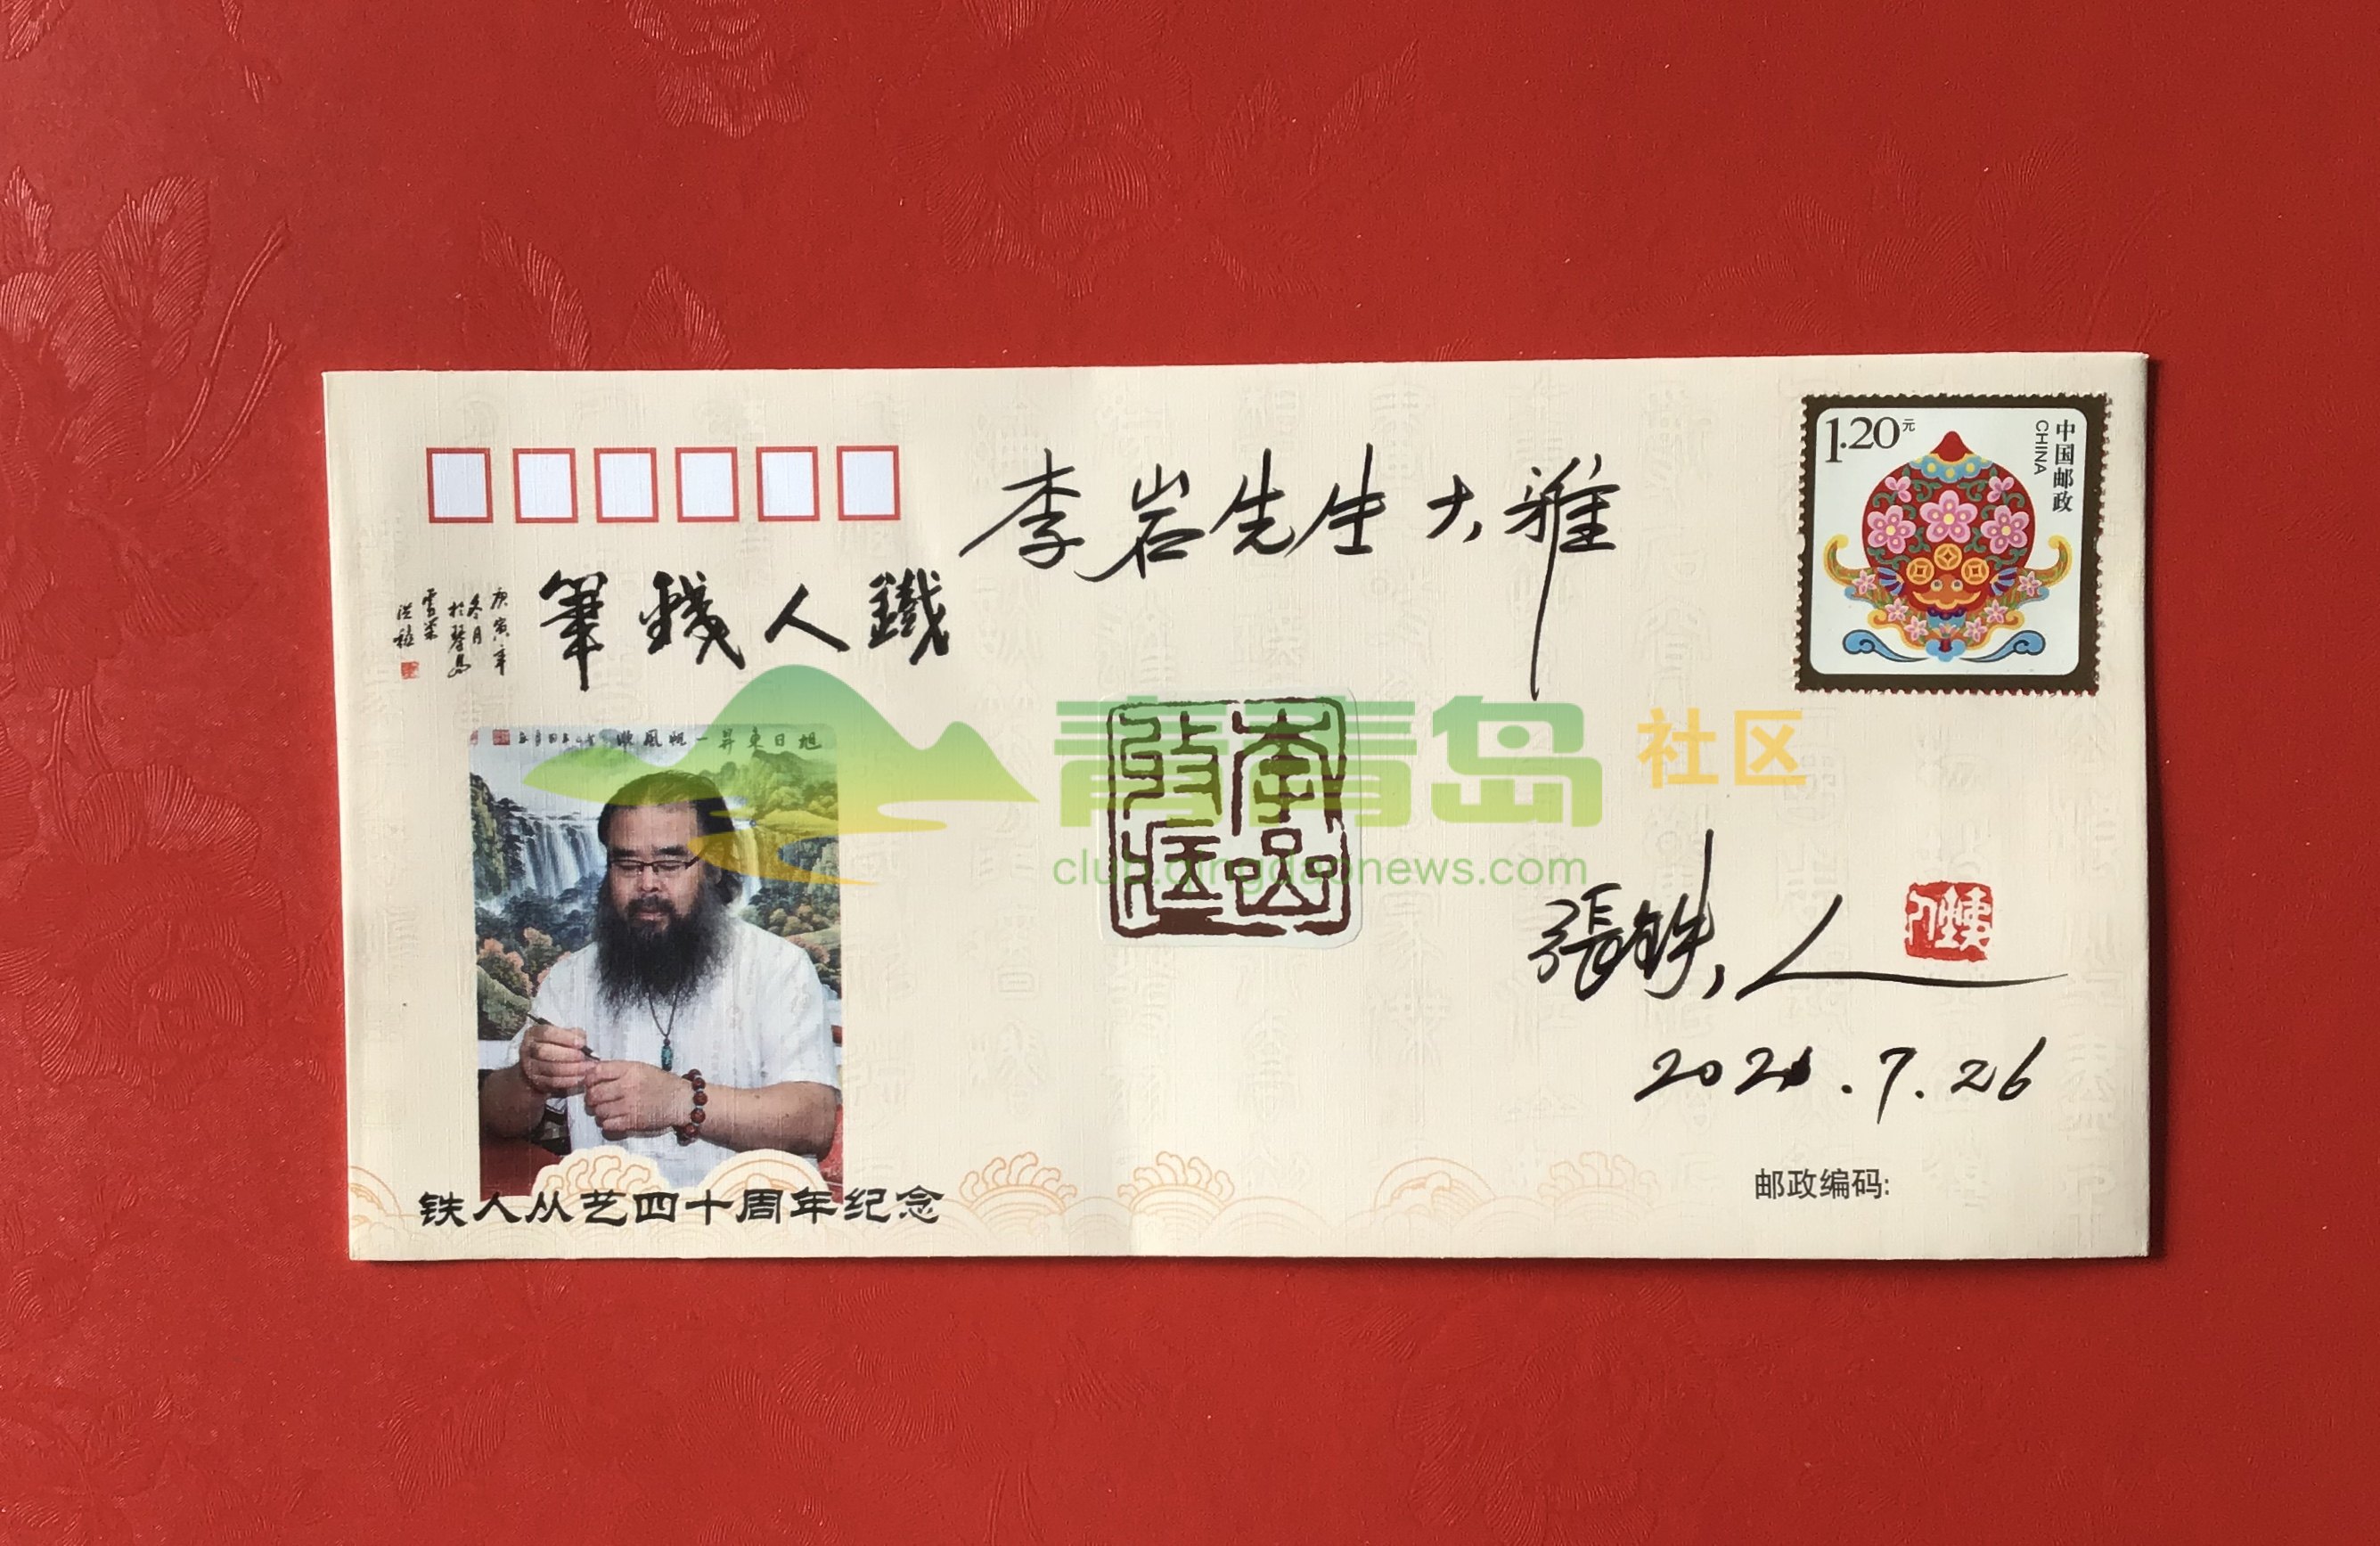 李岩先生大雅
1.20元
中国邮政
CHINA
筆錢人鐵
庚寅年
冬月
於琴島
旭日東昇一帆風順
青青岛 社区
club.qingdaonews.com
張铁人
2021.7.26
铁人从艺四十周年纪念
邮政编码: